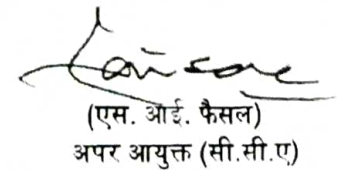 (एस. आई. फैसल)
अपर आयुक्त (सी.सी.ए)